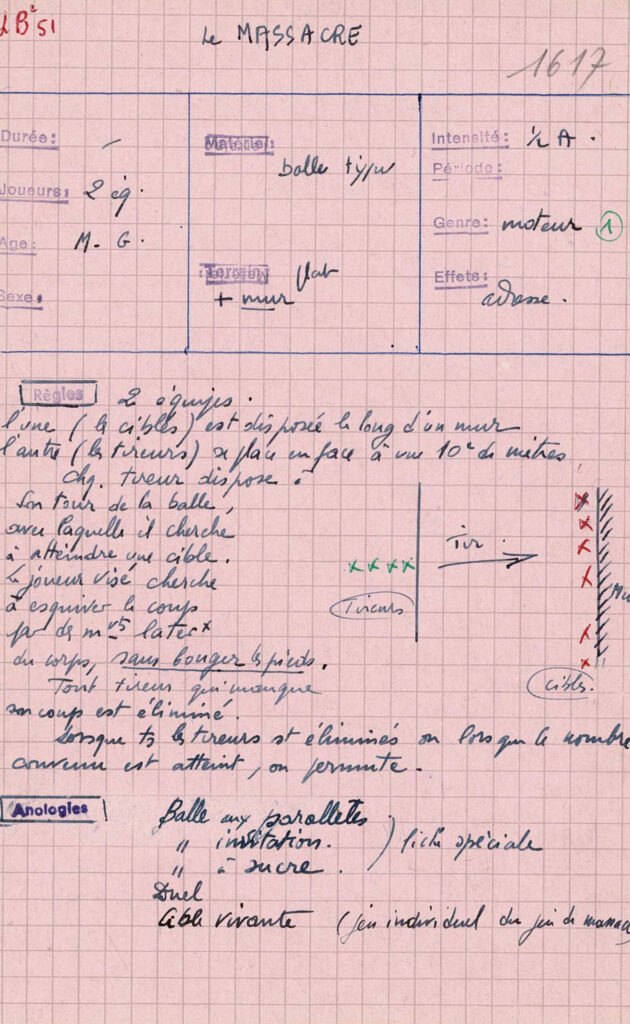 LB² 51
Le MASSACRE
1617
Durée: -
Joueurs: 2 éq.
Age: M. G.
Sexe.
balle type
Terrain: plat
+ mur
Intensité: ½ A.
Période:
Genre: moteur 1
Effets: adresse.
Règles 2 équipes.
l'une (les cibles) est disposée le long d'un mur
l'autre (les tireurs) se place en face à une 10e de mètres
Chq. tireur dispose à
son tour de la balle,
avec laquelle il cherche
à atteindre une cible.
Le joueur visé cherche
à esquiver le coup
par des mvts laterx
du corps, sans bouger les pieds.
Tout tireur qui manque
son coup est éliminé.
Lorsque ts les tireurs st éliminés ou lorsque le nombre
convenu est atteint, on permute.
Tir.
Tireurs
Mu
cibles.
Analogies
Balle aux paralletes
" invitation.
" à sucre.
) fiche spéciale
Duel
Cible vivante (jeu individuel du jeu de massac